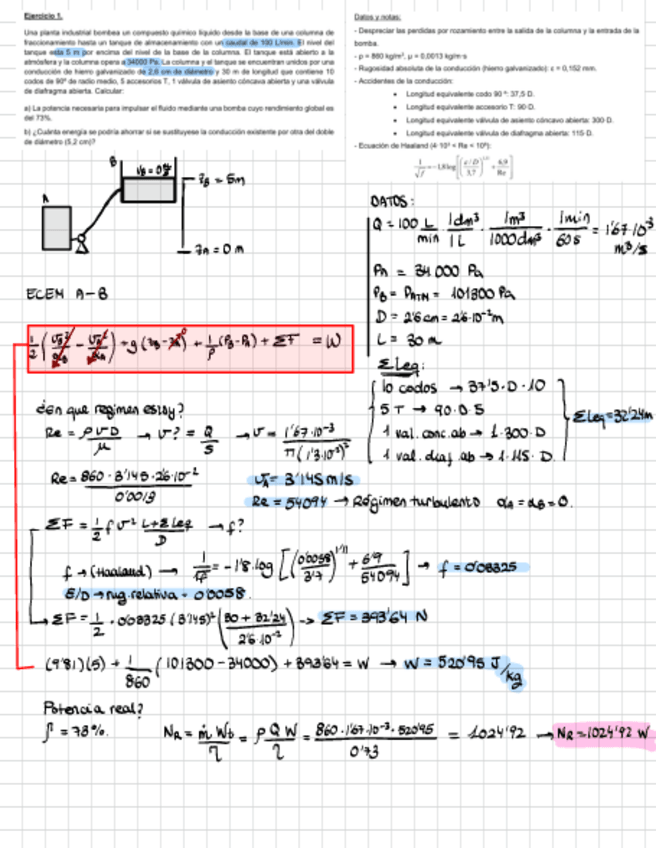 Ejercicio 1.
Una planta industrial bombea un compuesto químico líquido desde la base de una columna de
fraccionamiento hasta un tanque de almacenamiento con un caudal de 100 L/min. El nivel del
tanque está 5 m por encima del nivel de la base de la columna. El tanque está abierto a la
atmósfera y la columna opera a 34000 Pa. La columna y el tanque se encuentran unidos por una
conducción de hierro galvanizado de 2,6 cm de diámetro y 30 m de longitud que contiene 10
codos de 90º de radio medio, 5 accesorios T, 1 válvula de asiento cóncava abierta y una válvula
de diafragma abierta. Calcular:
a) La potencia necesaria para impulsar el fluido mediante una bomba cuyo rendimiento global es
del 73%.
b) ¿Cuánta energía se podría ahorrar si se sustituyese la conducción existente por otra del doble
de diámetro (5,2 cm)?
Datos y notas:
- Despreciar las perdidas por rozamiento entre la salida de la columna y la entrada de la
bomba.
- ρ = 860 kg/m³, μ = 0,0013 kg/m·s
- Rugosidad absoluta de la conducción (hierro galvanizado): ε = 0,152 mm.
- Accidentes de la conducción:
• Longitud equivalente codo 90 º: 37,5 D.
• Longitud equivalente accesorio T: 90 D.
• Longitud equivalente válvula de asiento cóncavo abierta: 300 D.
• Longitud equivalente válvula de diafragma abierta: 115 D.
- Ecuación de Haaland (4·10³ < Re < 10⁸):
1/√f = -1,8 log [((ε/D)/3,7)^1,11 + 6,9/Re]
A
B
zB = 5m
zA = 0 m
DATOS:
Q = 100 L/min · 1dm³/1L · 1m³/1000dm³ · 1min/60s = 1'67·10⁻³ m³/s
PA = 34 000 Pa
PB = PATM = 101300 Pa
D = 2'6cm = 2'6·10⁻²m
L = 30 m
ECEM A-B
1/2 (vB²/αB - vA²/αA) + g(zB - zA) + 1/ρ (PB - PA) + ΣF = W
Σ Leq:
10 codos → 37'5·D·10
5 T → 90·D·5
1 val. conc. ab → 1·300·D
1 val. diaf. ab → 1·115·D.
ΣLeq = 32'24m
¿en que regimen estoy?
Re = ρvD/μ → v? = Q/S → v = 1'67·10⁻³/π(1'3·10⁻²)²
Re = 860·3'145·2'6·10⁻²/0'0013
vA = 3'145 m/s
Re = 54094 → Régimen turbulento αA = αB = 0.
ΣF = 1/2 f v² L+ΣLeq/D → f?
f → (Haaland) → 1/√f = -1'8·log [(0'0058/3'7)^1'11 + 6'9/54094] → f = 0'03325
E/D → rug. relativa = 0'0058.
ΣF = 1/2 · 0'03325 (3'145)² (30 + 32'24/2'6·10⁻²) → ΣF = 393'64 N
(9'81)(5) + 1/860 (101300 - 34000) + 393'64 = W → W = 520'95 J/kg
Potencia real?
η = 73%.
NR = ṁ Wb/η = ρ Q W/η = 860·1'67·10⁻³·520'95/0'73 = 1024'92 → NR = 1024'92 W